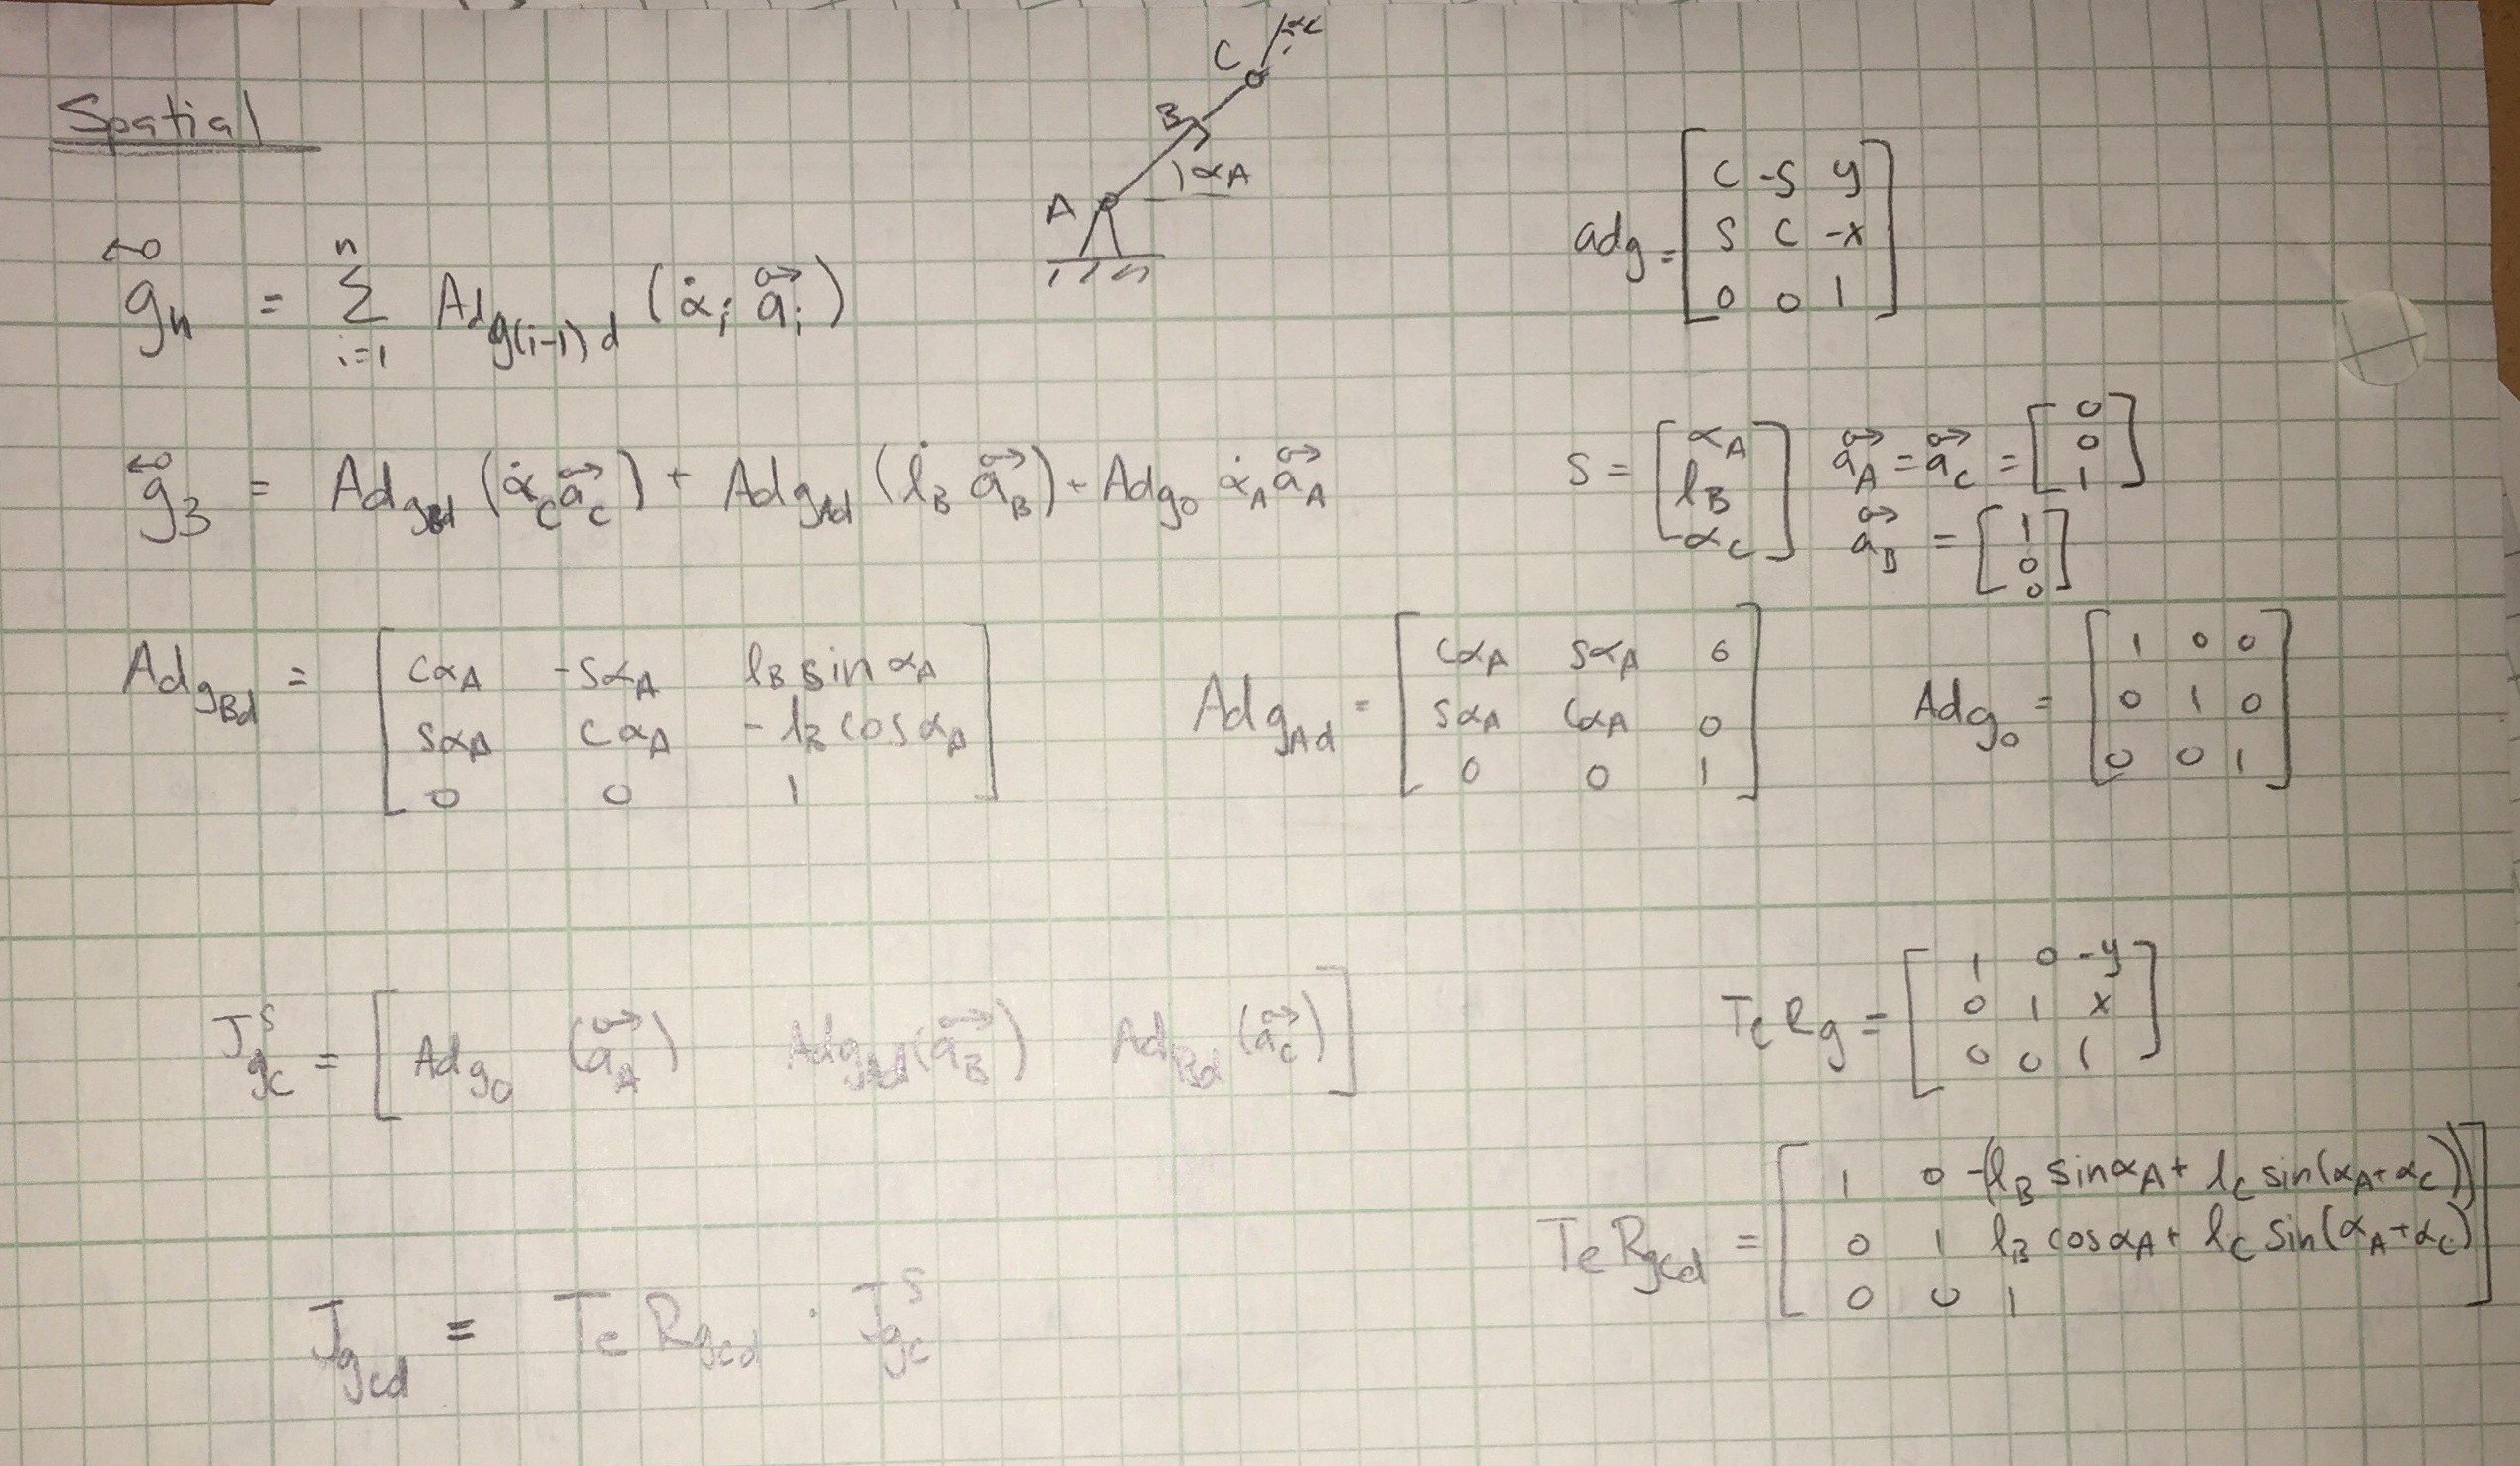 Spatial
A B C αA αC
adg = [c -s y; s c -x; 0 0 1]
gn = Σ i=1 n Ad g(i-1)d (α̇i ai)
g3 = Ad gBd (α̇C aC) + Ad gAd (l̇B aB) + Ad g0 α̇A aA
S = [αA; lB; αC] aA = aC = [0; 0; 1]
aB = [1; 0; 0]
Ad gBd = [cαA -sαA lB sin αA; sαA cαA -lB cos αA; 0 0 1]
Ad gAd = [cαA sαA 0; sαA cαA 0; 0 0 1]
Ad g0 = [1 0 0; 0 1 0; 0 0 1]
J^s gC = [Ad g0 (aA) Ad gAd (aB) Ad Bd (aC)]
TeRg = [1 0 -y; 0 1 x; 0 0 1]
TeRgcd = [1 0 -(lB sin αA + lC sin(αA+αC)); 0 1 lB cos αA + lC sin(αA+αC); 0 0 1]
Jgcd = TeRgcd · J^s gC